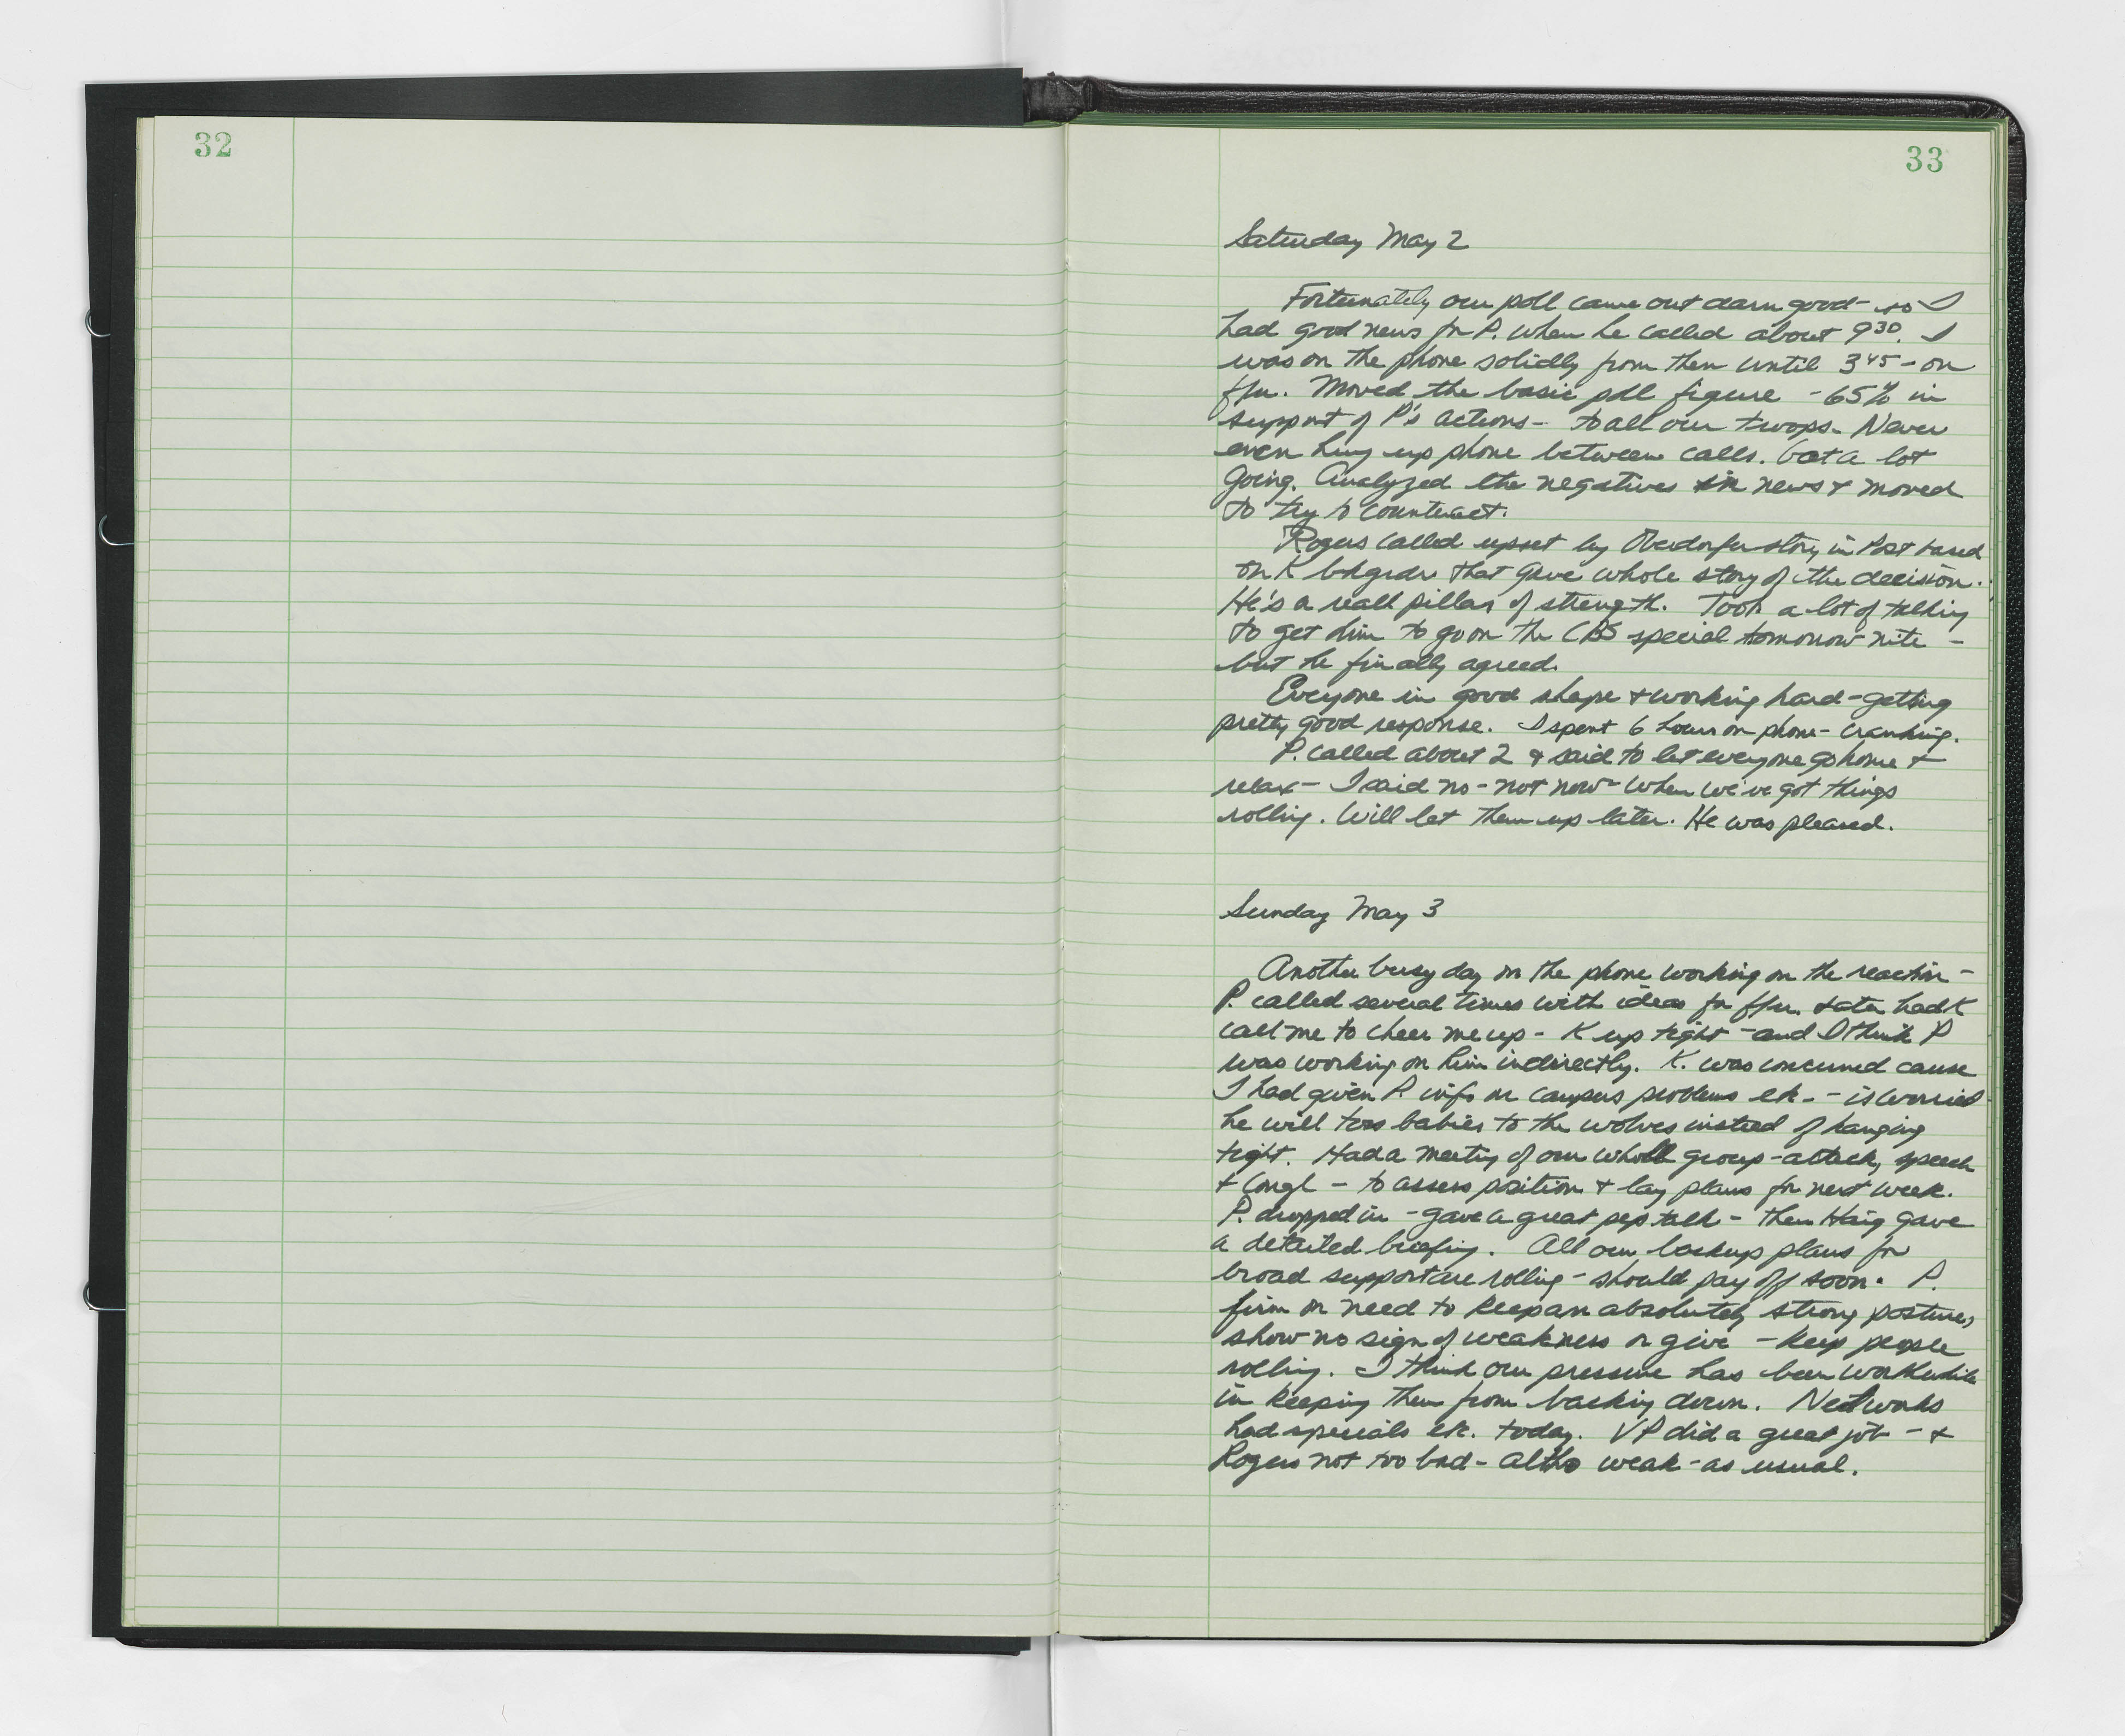 32
33
Saturday May 2
Fortunately our poll came out darn good - so I
had good news for P. when he called about 9 30. I
was on the phone solidly from then until 3 45 - on
ffu. Moved the basic poll figure - 65% in
support of P's actions - to all our troops. Never
even hung up phone between calls. Got a lot
going. Analyzed the negatives in news & moved
to try to counteract.
Rogers called upset by Oberdorfer story in Post based
on K bkgrdr that gave whole story of the decision.
He's a reall pillar of strength. Took a lot of talking
to get him to go on the CBS special tomorrow nite -
but he finally agreed.
Everyone in good shape & working hard - getting
pretty good response. I spent 6 hours on phone - cranking.
P. called about 2 & said to let everyone go home &
relax - I said no - not now - when we've got things
rolling. Will let them up later. He was pleased.
Sunday May 3
Another busy day on the phone working on the reaction -
P. called several times with ideas for ffu. & later had K
call me to cheer me up - K up tight - and I think P
was working on him indirectly. K. was concerned cause
I had given P. info on campus problems etc. - is worried
he will toss babies to the wolves instead of hanging
tight. Had a meeting of our wholl group - attack, speech
& Congl - to assess position & lay plans for next week.
P. dropped in - gave a great pep talk - then Haig gave
a detailed briefing. All our backup plans for
broad support are rolling - should pay off soon. P.
firm on need to keep an absolutely strong posture,
show no sign of weakness or give - keep people
rolling. I think our pressure has been worthwhile
in keeping them from backing down. Networks
had specials etc. today. VP did a great job - &
Rogers not too bad - altho weak - as usual.